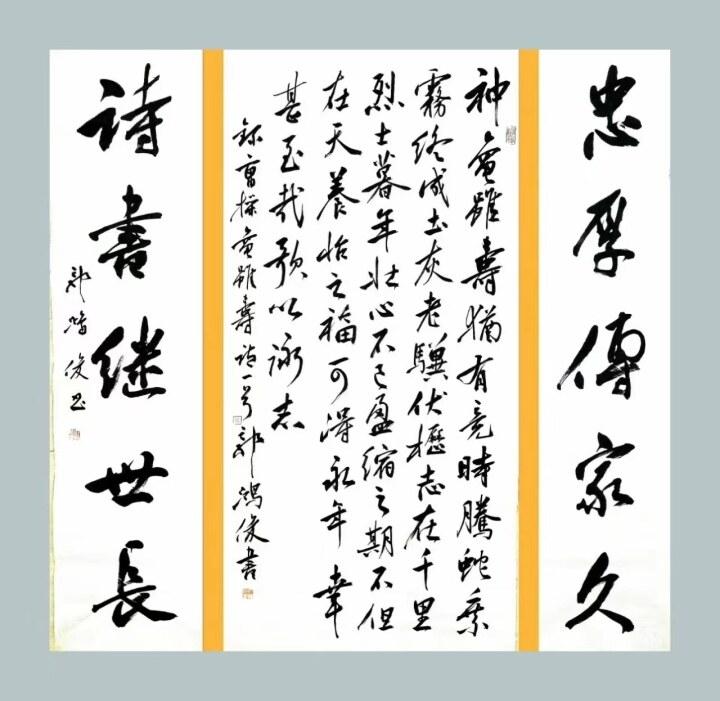 忠厚傳家久
神龜雖壽猶有竟時騰蛇乘
霧終成土灰老驥伏櫪志在千里
烈士暮年壯心不已盈縮之期不但
在天養怡之福可得永年幸
甚至哉歌以詠志
錄曹操龜雖壽詩一首郭鴻俊書
诗書继世長
郭鴻俊书